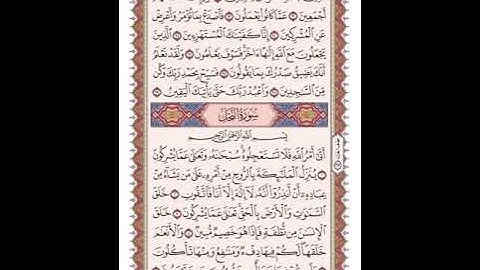 أَجْمَعِينَ ۝ عَمَّا كَانُوا۟ يَعْمَلُونَ ۝ فَٱصْدَعْ بِمَا تُؤْمَرُ وَأَعْرِضْ
عَنِ ٱلْمُشْرِكِينَ ۝ إِنَّا كَفَيْنَٰكَ ٱلْمُسْتَهْزِءِينَ ۝ ٱلَّذِينَ
يَجْعَلُونَ مَعَ ٱللَّهِ إِلَٰهًا ءَاخَرَ فَسَوْفَ يَعْلَمُونَ ۝ وَلَقَدْ نَعْلَمُ
أَنَّكَ يَضِيقُ صَدْرُكَ بِمَا يَقُولُونَ ۝ فَسَبِّحْ بِحَمْدِ رَبِّكَ وَكُن
مِّنَ ٱلسَّٰجِدِينَ ۝ وَٱعْبُدْ رَبَّكَ حَتَّىٰ يَأْتِيَكَ ٱلْيَقِينُ ۝
سُورَةُ النَّحْلِ
بِسْمِ ٱللَّهِ ٱلرَّحْمَٰنِ ٱلرَّحِيمِ
أَتَىٰٓ أَمْرُ ٱللَّهِ فَلَا تَسْتَعْجِلُوهُ سُبْحَٰنَهُۥ وَتَعَٰلَىٰ عَمَّا يُشْرِكُونَ
۝ يُنَزِّلُ ٱلْمَلَٰٓئِكَةَ بِٱلرُّوحِ مِنْ أَمْرِهِۦ عَلَىٰ مَن يَشَآءُ مِنْ
عِبَادِهِۦٓ أَنْ أَنذِرُوٓا۟ أَنَّهُۥ لَآ إِلَٰهَ إِلَّآ أَنَا۠ فَٱتَّقُونِ ۝ خَلَقَ
ٱلسَّمَٰوَٰتِ وَٱلْأَرْضَ بِٱلْحَقِّ تَعَٰلَىٰ عَمَّا يُشْرِكُونَ ۝ خَلَقَ
ٱلْإِنسَٰنَ مِن نُّطْفَةٍ فَإِذَا هُوَ خَصِيمٌ مُّبِينٌ ۝ وَٱلْأَنْعَٰمَ
خَلَقَهَا لَكُمْ فِيهَا دِفْءٌ وَمَنَٰفِعُ وَمِنْهَا تَأْكُلُونَ